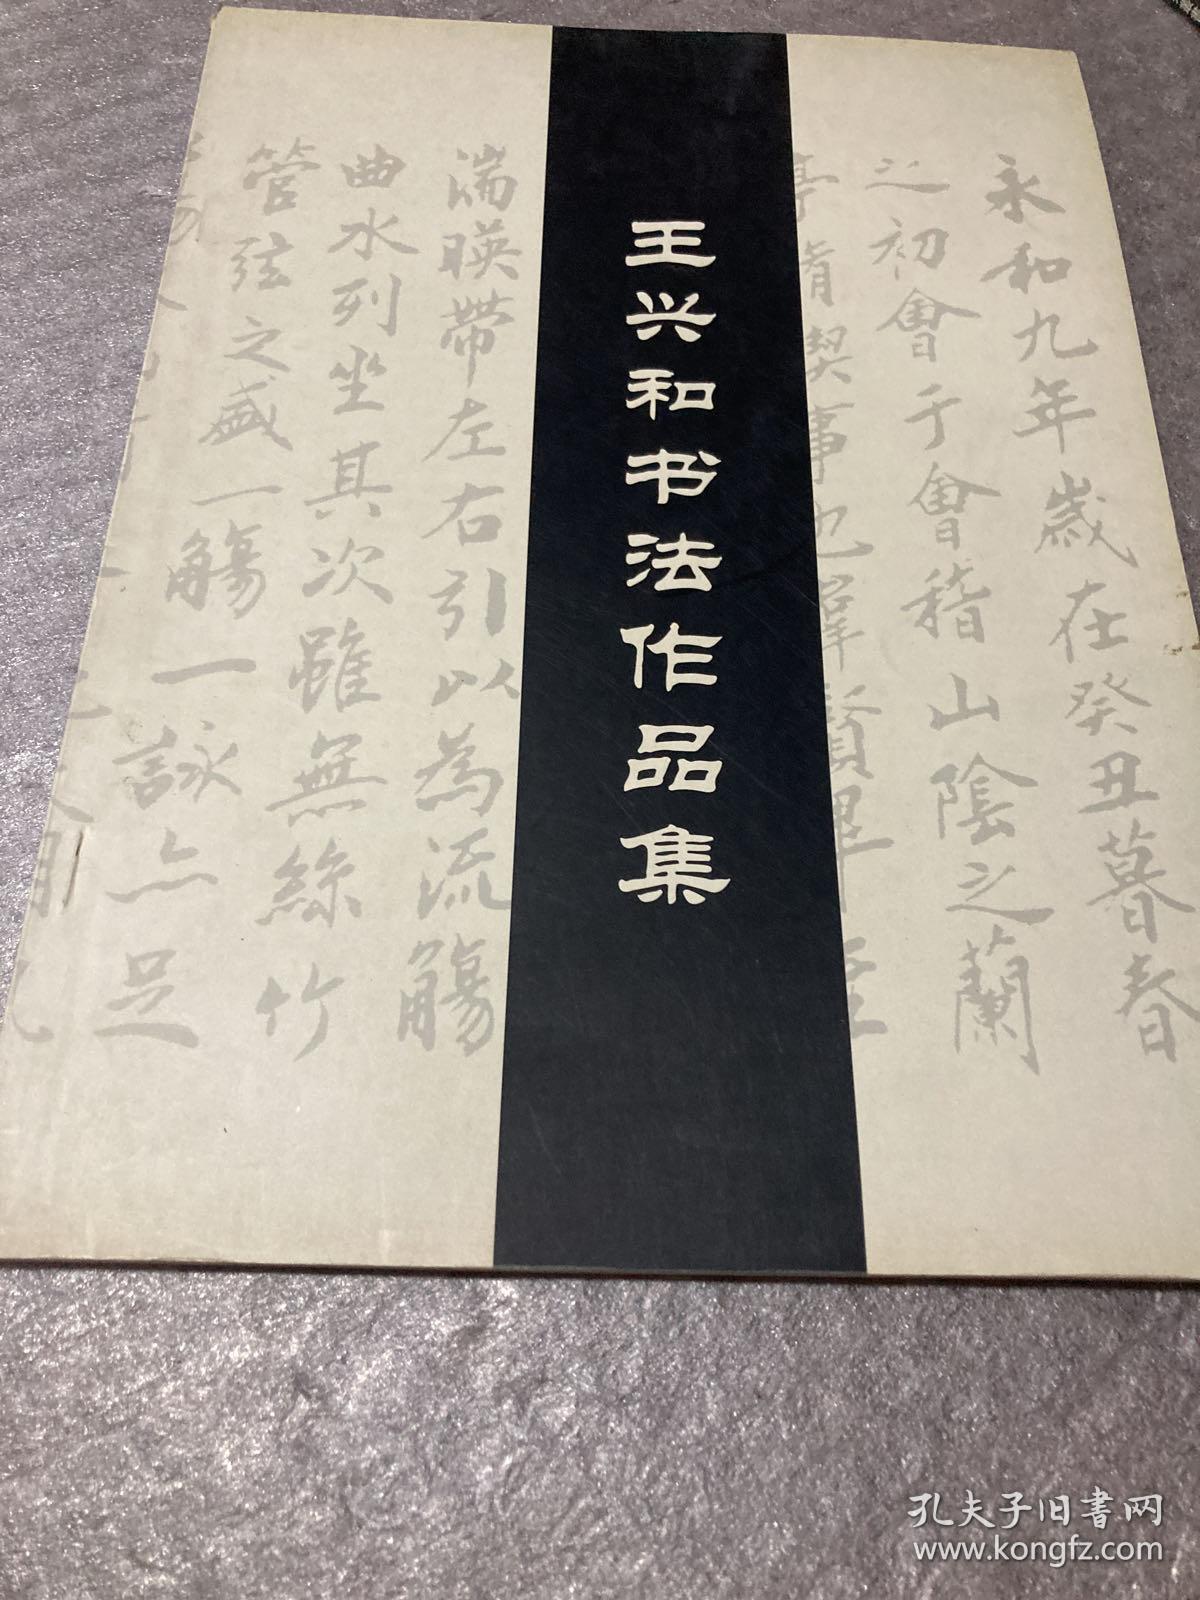 王兴和书法作品集
永和九年歲在癸丑暮春
之初會于會稽山陰之蘭
亭脩禊事也群賢畢至
湍暎帶左右引以為流觴
曲水列坐其次雖無絲竹
管弦之盛一觴一詠亦足
孔夫子旧書网
www.kongfz.com